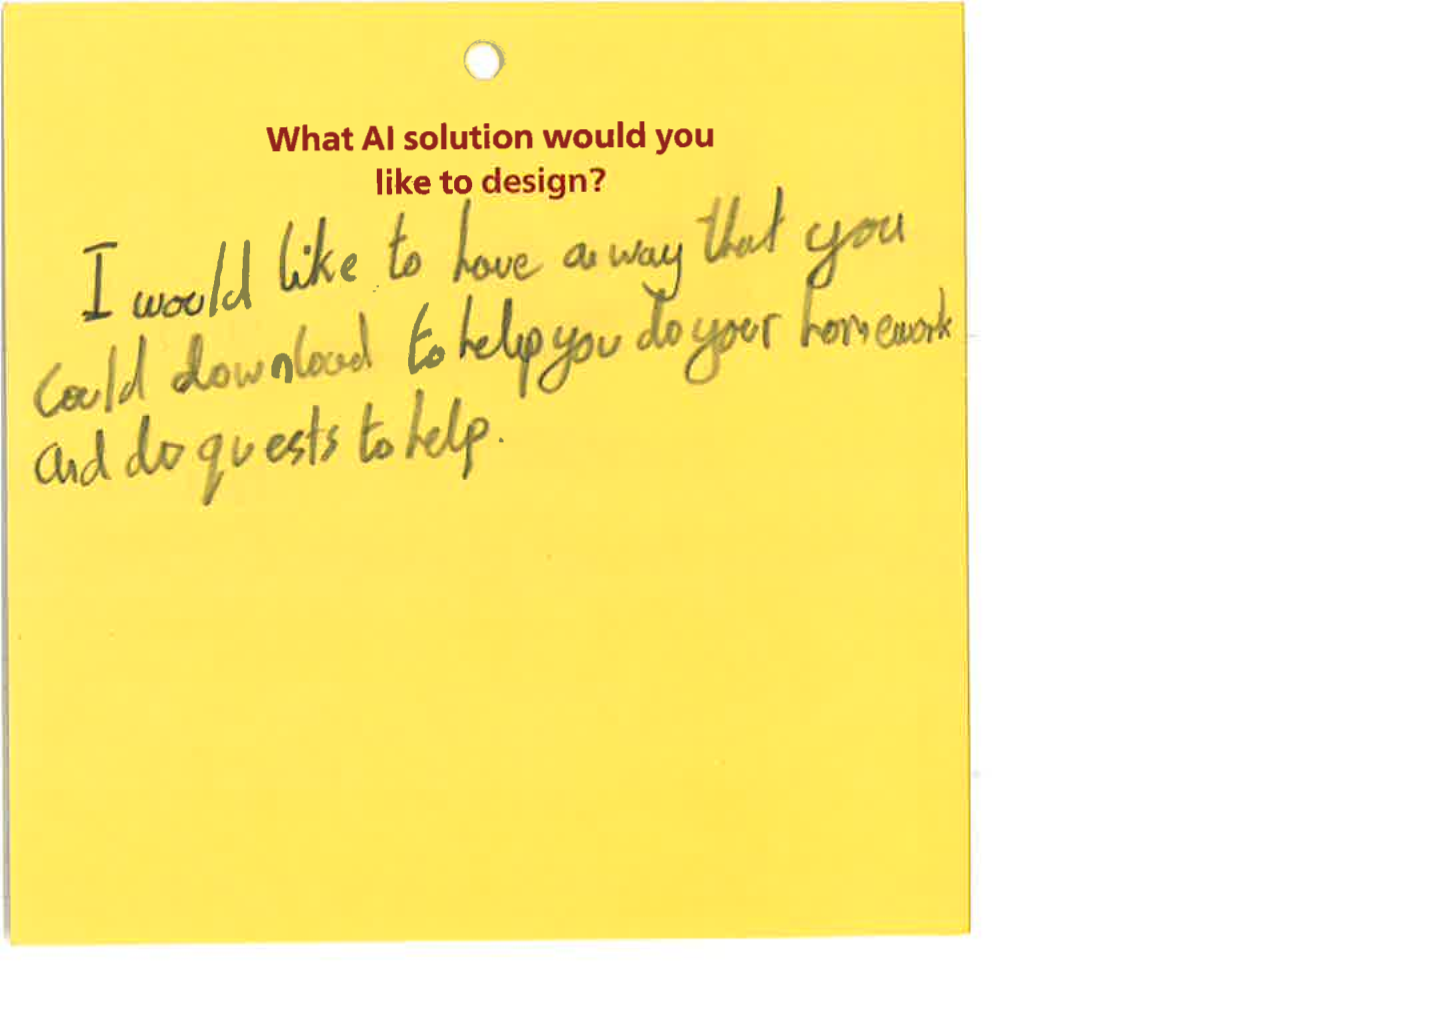 What AI solution would you
like to design?
I would like to have a way that you
could download to help you do your homework
and do quests to help.